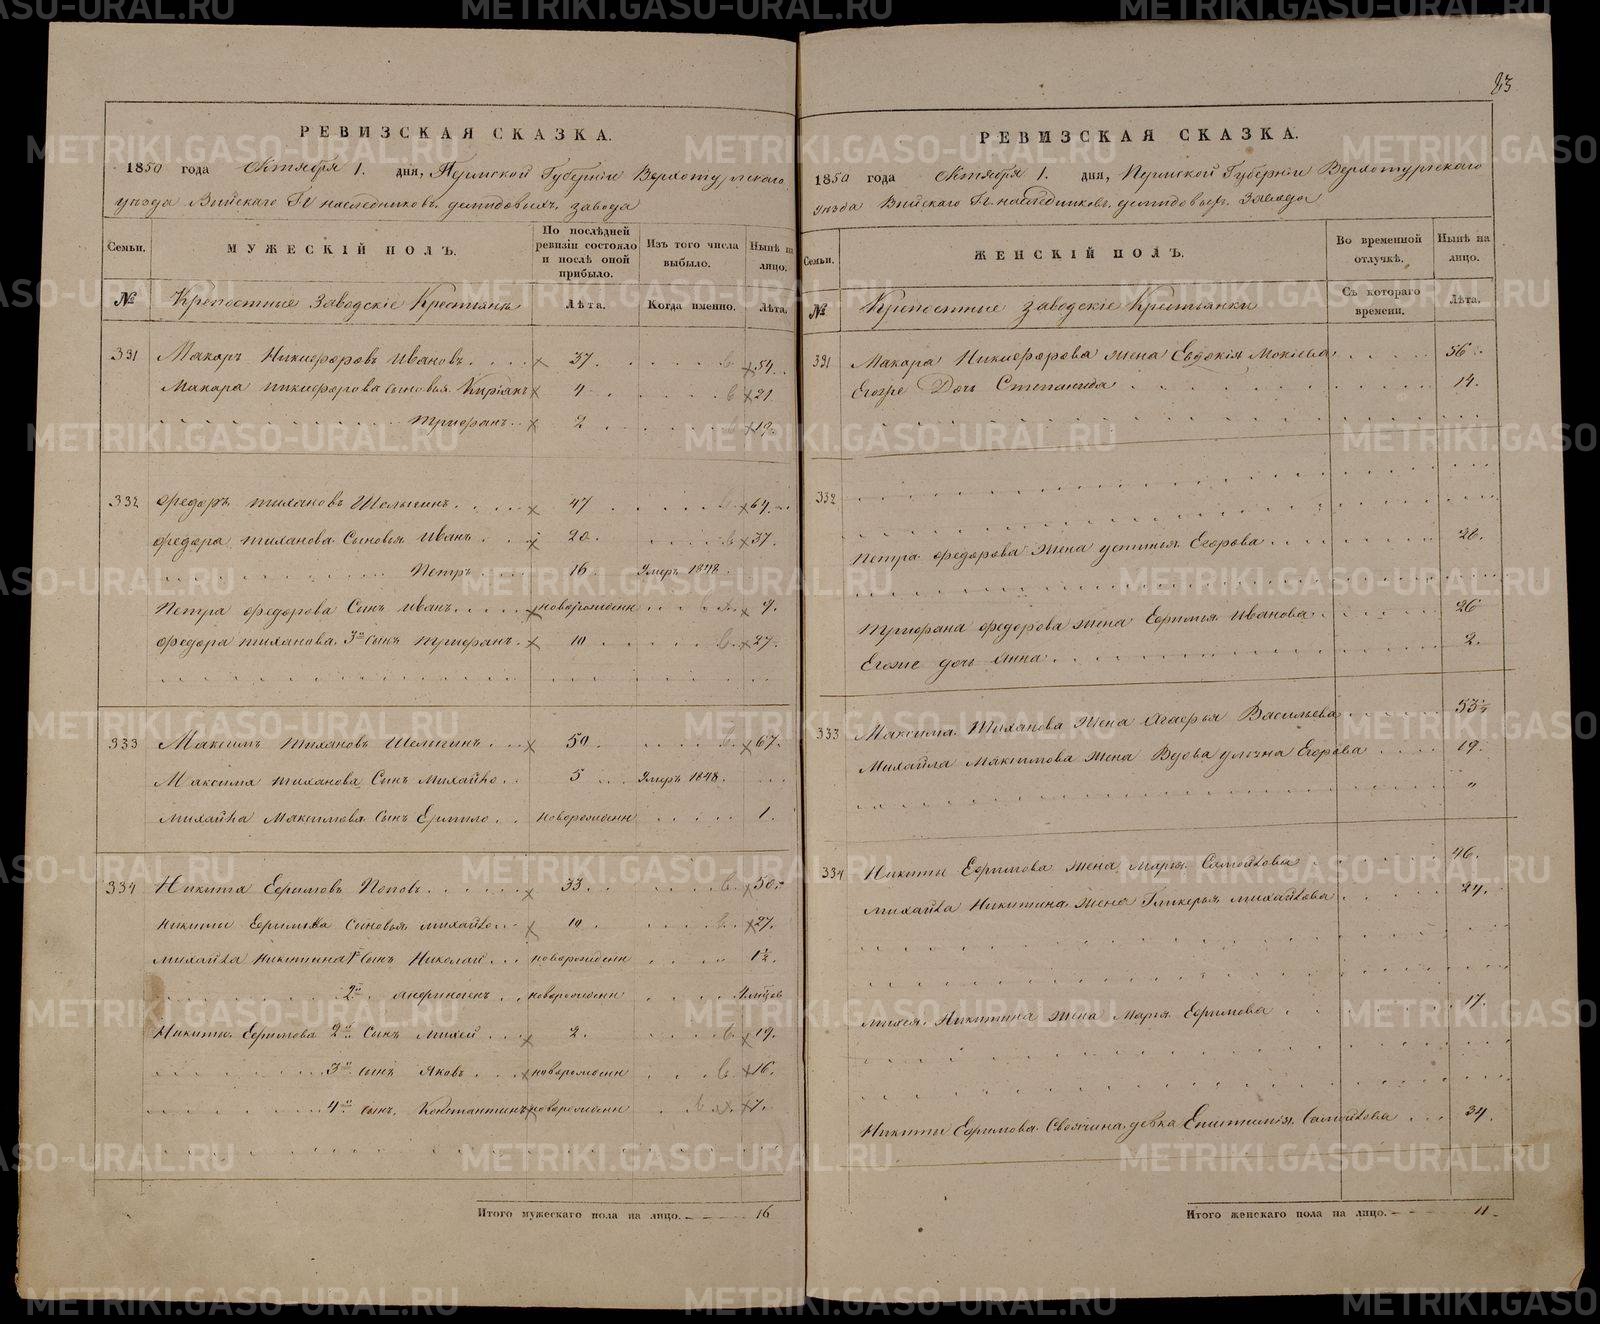 83
РЕВИЗСКАЯ СКАЗКА.
1850 года Октября 1. дня, Пермской Губерніи Верхотурскаго
уѣзда Выйскаго Г.г. наслѣдниковъ демидовыхъ завода
Семьи.
МУЖЕСКІЙ ПОЛЪ.
По послѣдней ревизіи состояло и послѣ оной прибыло.
Изъ того числа выбыло.
Нынѣ на лицо.
№
Крепостные Заводскіе Крестьянъ
Лѣта.
Когда именно.
Лѣта.
331 Макаръ Никифоровъ Ивановъ 37 54
Макара никифорова сыновья Киріакъ 4 21
Трифанъ 2 19
332 Федоръ тихановъ Шелыгинъ 47 64
Федора тиханова Сыновья Иванъ 20 37
Петръ 16 Умеръ 1848
Петра Федорова Сынъ иванъ новорожденн
Федора тиханова 3й сынъ трифанъ 10 27
333 Максимъ тихановъ Шелыгинъ 50 67
Максима тиханова Сынъ Михайло 5 Умеръ 1848
Михайла Максимова Сынъ Ермило новорожденн 1
334 Никита Ефимовъ Поповъ 33 50
Никиты Ефимова Сыновья михайло 10 27
михайла никитина 1й Сынъ Николай новорожденн 1½
2й новорожденн
Никиты Ефимова 2й Сынъ михей 2 19
3й сынъ Яковъ новорожденн 16
4й сынъ Константинъ новорожденн 7
Итого мужескаго пола на лицо. 16
РЕВИЗСКАЯ СКАЗКА.
1850 года Октября 1. дня, Пермской Губерніи Верхотурскаго
уѣзда Выйскаго Г.г. наслѣдниковъ демидовыхъ завода
Семьи.
ЖЕНСКІЙ ПОЛЪ.
Во временной отлучкѣ.
Нынѣ на лицо.
№
Крепостные заводскіе Крестьянки
Съ котораго времени.
Лѣта.
331 Макара Никифорова жена Евдокія Мокіева 56
Егоже Дочь Степанида 14
332
Петра федорова жена устинья Егорова
Трифана федорова жена Ефимья Иванова 26
Егоже дочь Анна 2
333 Максима Тиханова жена Агафья Васильева 53
Михайла Максимова жена Вдова Егорова 19
334 Никиты Ефимова жена Марья Самойлова 46
Михайла Никитина жена Гликерья михайлова
михея Никитина жена Марья Ефимова 17
Никиты Ефимова Своячина девка Епистимія Самойлова 34
Итого женскаго пола на лицо. 11
METRIKI.GASO-URAL.RU